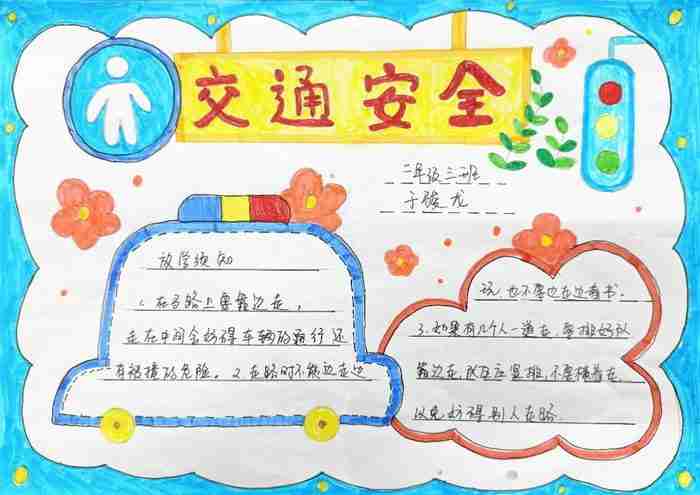 交通安全
二年级三班
于骏龙
放学须知
1.在马路上要靠边走,
走在中间会妨碍车辆的通行还
有被撞的危险。2.在路时不能边走边
玩,也不要边走边看书。
3.如果有几个人一道走,要排好队
靠边走,应竖排,不要横着走
以免妨碍别人走路.